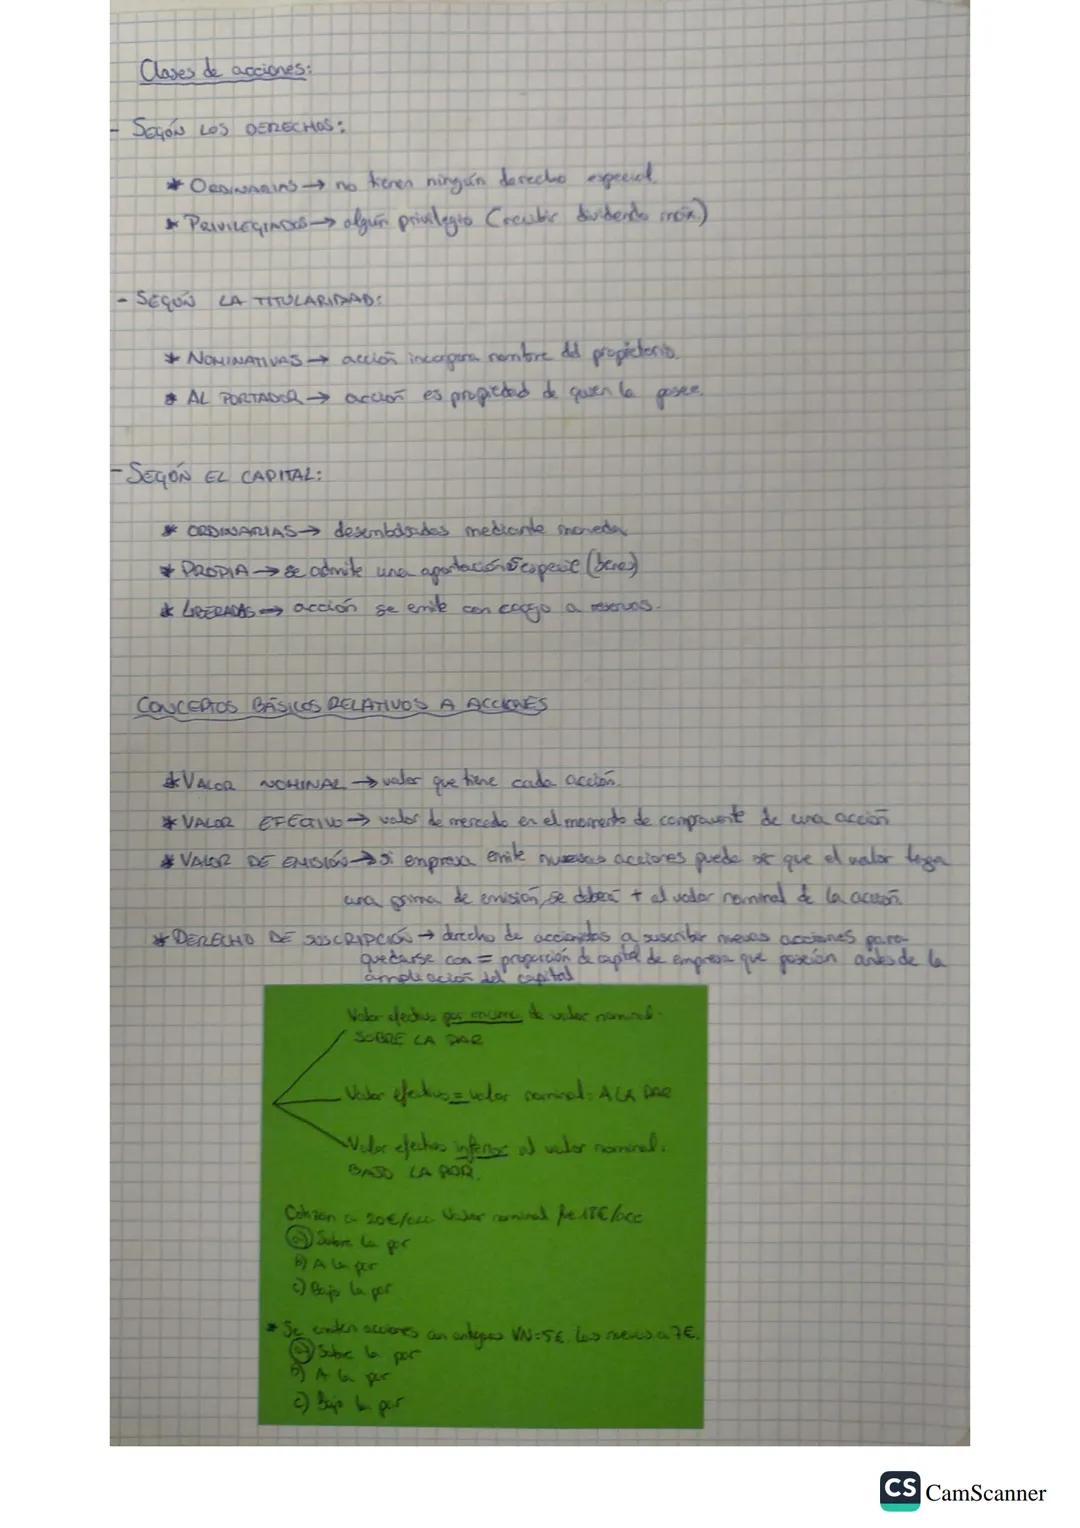 Clases de acciones:
- SEGÚN LOS DERECHOS:
* ORDINARIAS → no tienen ningún derecho especial.
* PRIVILEGIADAS → algún privilegio (recibir dividendo máx)
- SEGÚN LA TITULARIDAD:
* NOMINATIVAS → acción incorpora nombre del propietario.
* AL PORTADOR → acción es propiedad de quien la posee.
- SEGÚN EL CAPITAL:
* ORDINARIAS → desembolsadas mediante moneda
* PROPIA → se admite una aportación especie (bienes)
* LIBERADAS → acción se emite con cargo a reservas.
CONCEPTOS BÁSICOS RELATIVOS A ACCIONES
* VALOR NOMINAL → valor que tiene cada acción.
* VALOR EFECTIVO → valor de mercado en el momento de compraventa de una acción
* VALOR DE EMISIÓN → Si empresa emite nuevas acciones puede ser que el valor tenga
una prima de emisión, se deberá + al valor nominal de la acción.
* DERECHO DE SUSCRIPCIÓN → derecho de accionistas a suscribir nuevas acciones para
quedarse con = proporción de capital de empresa que poseían antes de la
ampliación del capital
Valor efectivo por encima de valor nominal.
SOBRE LA PAR
Valor efectivo = valor nominal: A LA PAR
Valor efectivo inferior al valor nominal:
BAJO LA PAR.
Cotizan a 20€/acc Valor nominal fue 18€/acc
a) Sobre la par
b) A la par
c) Bajo la par
* Se emiten acciones con antiguas VN=5€. Las nuevas a 7€.
a) Sobre la par
b) A la par
c) Bajo la par
CS CamScanner